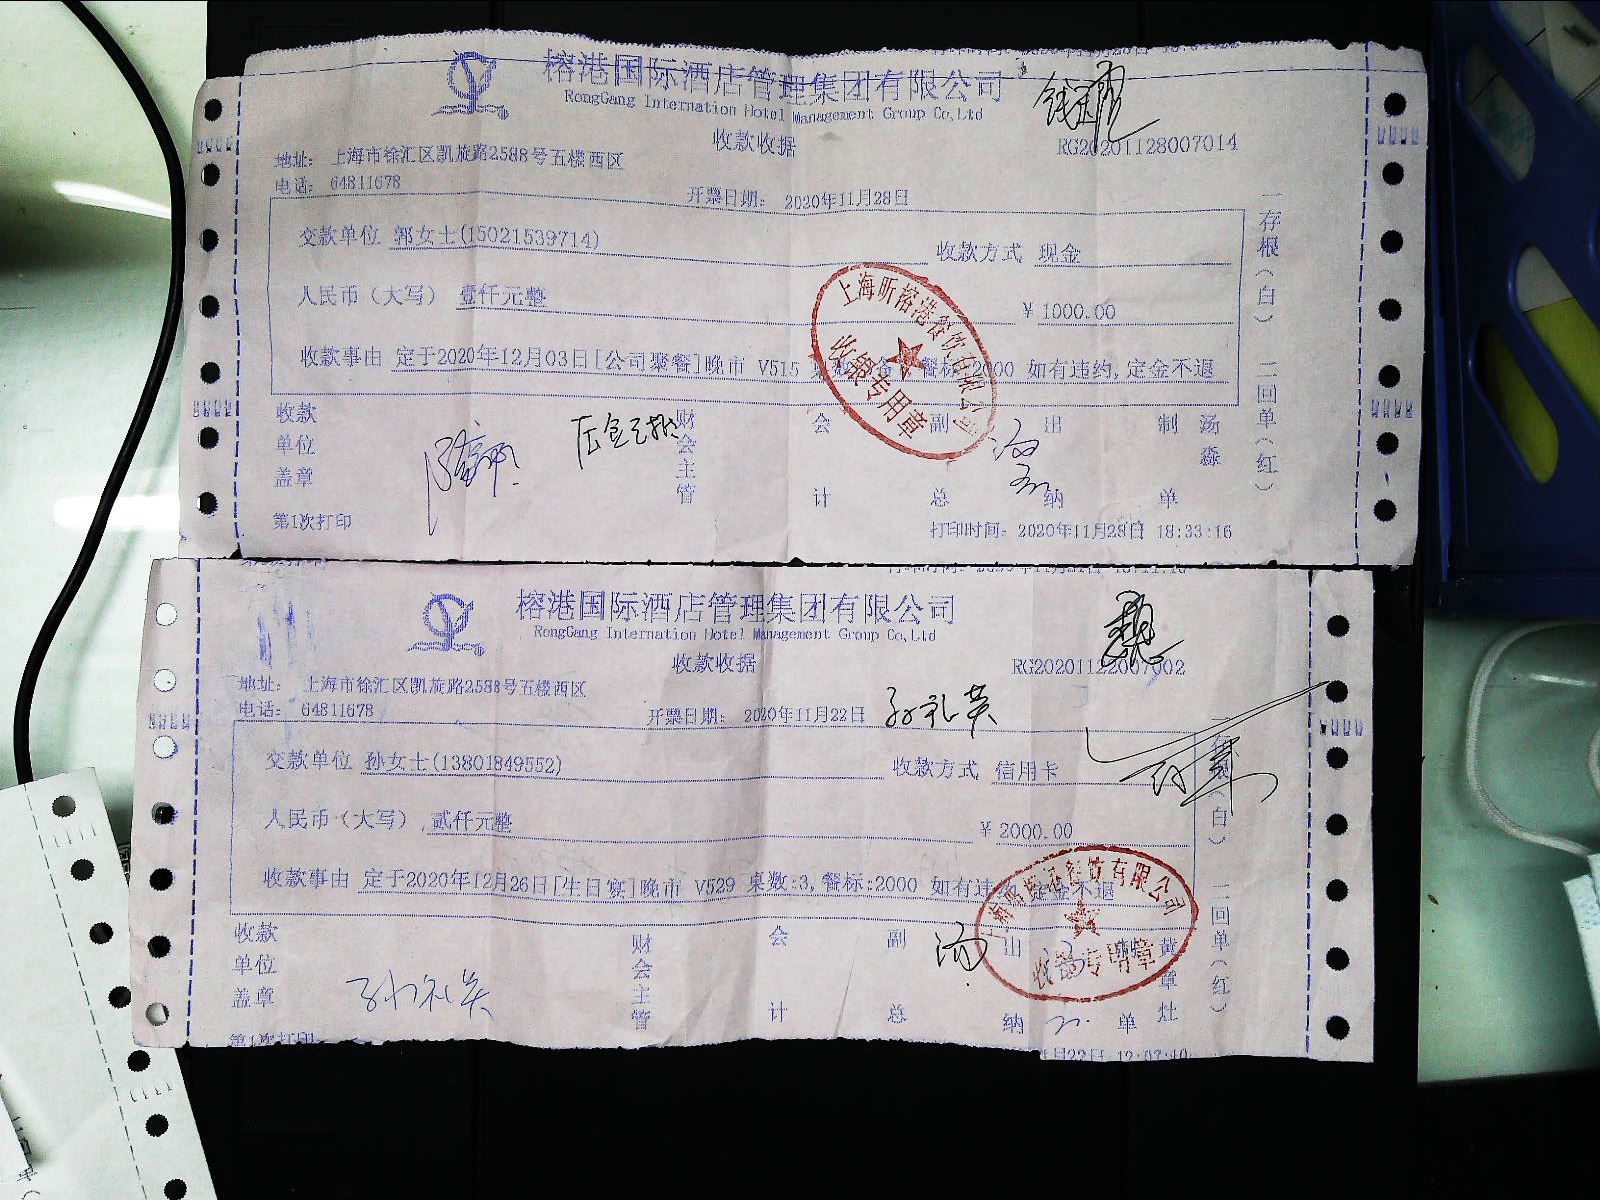 榕港国际酒店管理集团有限公司
RongGang Internation Hotel Management Group Co,Ltd
收款收据
RG20201128007014
地址: 上海市徐汇区凯旋路2588号五楼西区
电话: 64811678
开票日期: 2020年11月28日
交款单位 郭女士(15021539714)
收款方式 现金
人民币（大写） 壹仟元整
￥ 1000.00
收款事由 定于2020年12月03日[公司聚餐]晚市 V515 餐标:2000 如有违约,定金不退
上海昕榕港餐饮有限公司
收银专用章
收款单位盖章
财会主管
会计
副总
出纳
制单
汤淼
一存根(白) 二回单(红)
第1次打印
打印时间: 2020年11月28日 18:33:16
榕港国际酒店管理集团有限公司
RongGang Internation Hotel Management Group Co,Ltd
收款收据
RG20201122007002
地址: 上海市徐汇区凯旋路2588号五楼西区
电话: 64811678
开票日期: 2020年11月22日
孙礼英
交款单位 孙女士(13801849552)
收款方式 信用卡
人民币（大写） 贰仟元整
￥ 2000.00
收款事由 定于2020年12月26日[生日宴]晚市 V529 桌数:3,餐标:2000 如有违 定金不退
餐饮有限公司
专用章
收款单位盖章
孙礼英
财会主管
会计
副总
汤
出纳
单
(白) 二回单(红)
第1次打印